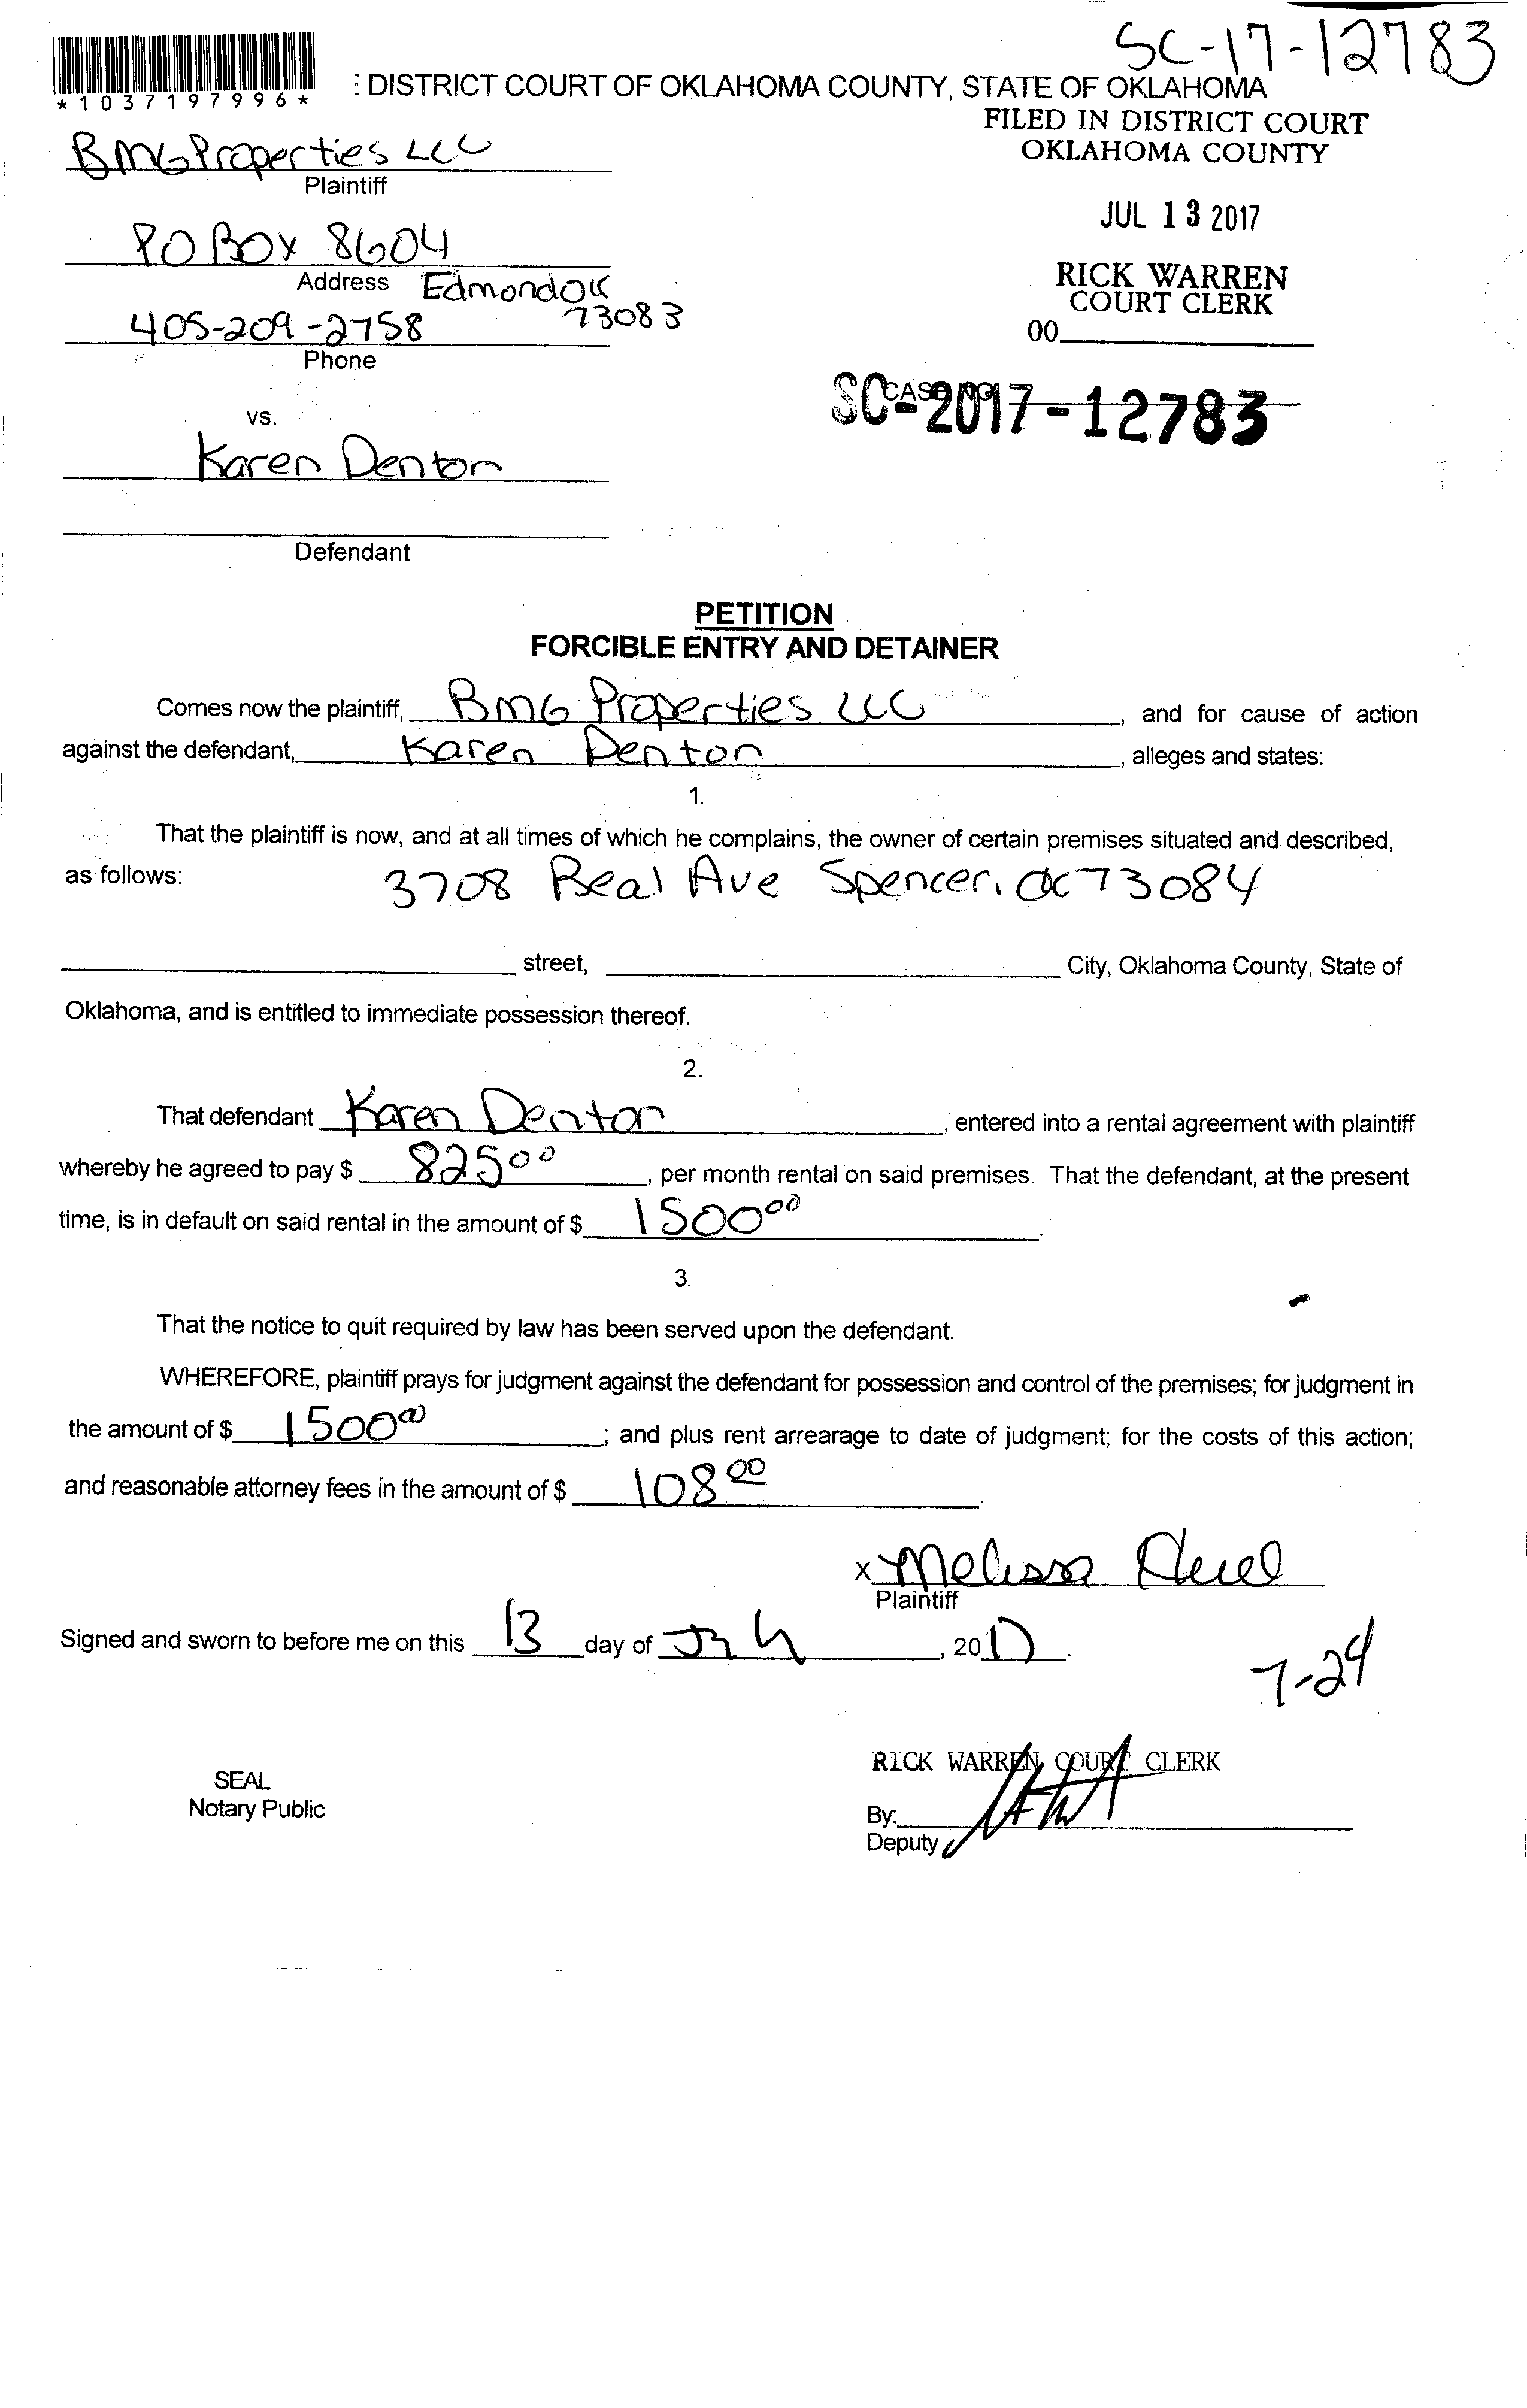 SC-17-12783
*1037197996*
: DISTRICT COURT OF OKLAHOMA COUNTY, STATE OF OKLAHOMA
FILED IN DISTRICT COURT
OKLAHOMA COUNTY
BMG Properties LLC
Plaintiff
JUL 13 2017
PO BOX 8604
Address Edmond OK
73083
RICK WARREN
COURT CLERK
00
405-209-2758
Phone
SC-2017-12783
vs.
Karen Denton
Defendant
PETITION
FORCIBLE ENTRY AND DETAINER
Comes now the plaintiff, BMG Properties LLC, and for cause of action
against the defendant, Karen Denton, alleges and states:
1.
That the plaintiff is now, and at all times of which he complains, the owner of certain premises situated and described,
as follows: 3708 Beal Ave Spencer, OK 73084
street, City, Oklahoma County, State of
Oklahoma, and is entitled to immediate possession thereof.
2.
That defendant Karen Denton, entered into a rental agreement with plaintiff
whereby he agreed to pay $ 825 00, per month rental on said premises. That the defendant, at the present
time, is in default on said rental in the amount of $ 1500 00.
3.
That the notice to quit required by law has been served upon the defendant.
WHEREFORE, plaintiff prays for judgment against the defendant for possession and control of the premises; for judgment in
the amount of $ 1500 00; and plus rent arrearage to date of judgment; for the costs of this action;
and reasonable attorney fees in the amount of $ 108 00.
x Melissa
Plaintiff
Signed and sworn to before me on this 13 day of July, 2017.
7-24
RICK WARREN, COURT CLERK
SEAL
Notary Public
By:
Deputy